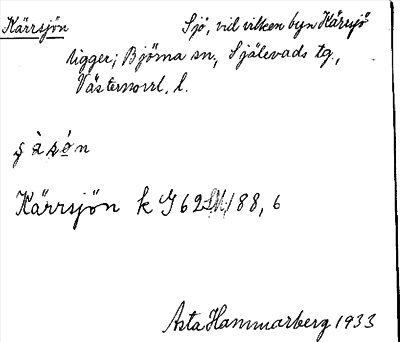 Kärrsjön Sjö, vid vilken byn Kärrsjö
ligger; Björna sn, Själevads tg.,
Västernorrl. l.
Kärrsjön k G 62 /188, 6
Asta Hammarberg 1933